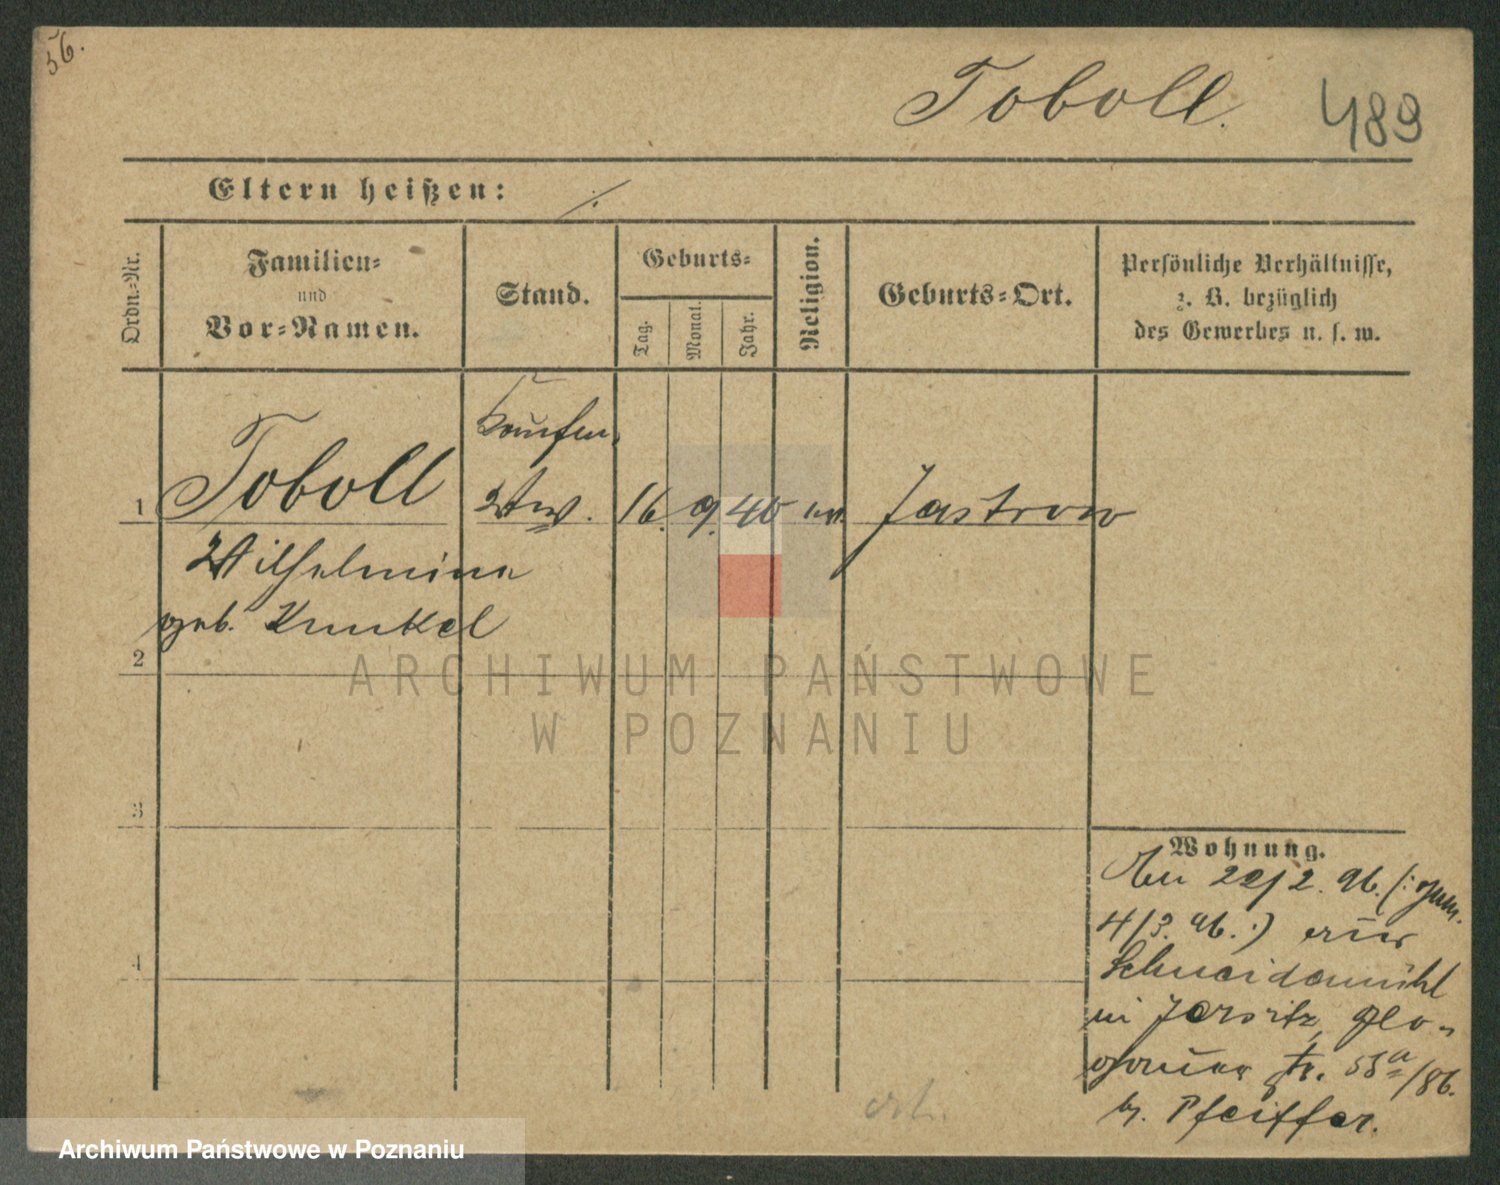 56.
Toboll.
489
Eltern heißen: ./.
Ordn.-Nr.
Familien-
und
Vor-Namen.
Stand.
Geburts-
Tag.
Monat.
Jahr.
Religion.
Geburts-Ort.
Persönliche Verhältnisse,
z. B. bezüglich
des Gewerbes u. s. w.
Kaufm.
1 Toboll Wtw. 16. 9. 40 ev. Jastrow
Wilhelmine
geb. Kunkel
2
ARCHIWUM PAŃSTWOWE
W POZNANIU
3
4
Wohnung.
Am 22/2. 96. (: gem.
4/3. 96. :) aus
Schneidemühl
in Jersitz, Glo-
gauer Str. 53a/86.
b. Pfeiffer.
Archiwum Państwowe w Poznaniu